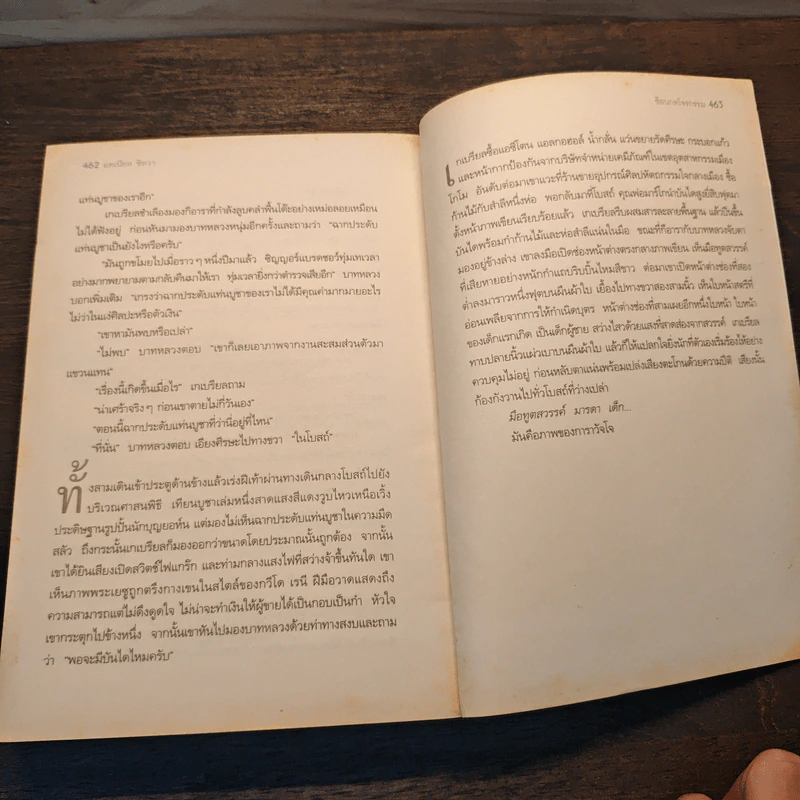 462 แดเนียล ซิลวา
แท่นบูชาของเราอีก"
เกเบรียลชำเลืองมองกีอาราที่กำลังลูบคลำพื้นโต๊ะอย่างเหม่อลอยเหมือน
ไม่ได้ฟังอยู่ ก่อนหันมามองบาทหลวงหนุ่มอีกครั้งและถามว่า "ฉากประดับ
แท่นบูชาเป็นยังไงหรือครับ"
"มันถูกขโมยไปเมื่อราว ๆ หนึ่งปีมาแล้ว ซิญญอร์แบรดชอว์ทุ่มเทเวลา
อย่างมากพยายามตามกลับคืนมาให้เรา ทุ่มเวลายิ่งกว่าตำรวจเสียอีก" บาทหลวง
บอกเพิ่มเติม "เกรงว่าฉากประดับแท่นบูชาของเราไม่ได้มีคุณค่ามากมายอะไร
ไม่ว่าในแง่ศิลปะหรือตัวเงิน"
"เขาหามันพบหรือเปล่า"
"ไม่พบ" บาทหลวงตอบ "เขาก็เลยเอาภาพจากงานสะสมส่วนตัวมา
แขวนแทน"
"เรื่องนี้เกิดขึ้นเมื่อไร" เกเบรียลถาม
"น่าเศร้าจริง ๆ ก่อนเขาตายไม่กี่วันเอง"
"ตอนนี้ฉากประดับแท่นบูชาที่ว่านี่อยู่ที่ไหน"
"ที่นั่น" บาทหลวงตอบ เอียงศีรษะไปทางขวา "ในโบสถ์"
ทั้งสามเดินเข้าประตูด้านข้างแล้วเร่งฝีเท้าผ่านทางเดินกลางโบสถ์ไปยัง
บริเวณศาสนพิธี เทียนบูชาเล่มหนึ่งสาดแสงสีแดงวูบไหวเหนือเวิ้ง
ประดิษฐานรูปปั้นนักบุญยอห์น แต่มองไม่เห็นฉากประดับแท่นบูชาในความมืด
สลัว ถึงกระนั้นเกเบรียลก็มองออกว่าขนาดโดยประมาณนั้นถูกต้อง จากนั้น
เขาได้ยินเสียงเปิดสวิตช์ไฟแกร๊ก และท่ามกลางแสงไฟที่สว่างจ้าขึ้นทันใด เขา
เห็นภาพพระเยซูถูกตรึงกางเขนในสไตล์ของกวีโด เรนี ฝีมือวาดแสดงถึง
ความสามารถแต่ไม่ดึงดูดใจ ไม่น่าจะทำเงินให้ผู้ขายได้เป็นกอบเป็นกำ หัวใจ
เขากระตุกไปข้างหนึ่ง จากนั้นเขาหันไปมองบาทหลวงด้วยท่าทางสงบและถาม
ว่า "พอจะมีบันไดไหมครับ"
463
เกเบรียลซื้อแอซิโตน แอลกอฮอล์ น้ำกลั่น แว่นขยายรัดศีรษะ กระบอกแก้ว
และหน้ากากป้องกันจากบริษัทจำหน่ายเคมีภัณฑ์ในเขตอุตสาหกรรมเมือง
โกโม อันดับต่อมาเขาแวะที่ร้านขายอุปกรณ์ศิลปหัตถกรรมใจกลางเมือง ซื้อ
ก้านไม้กับสำลีหนึ่งห่อ พอกลับมาที่โบสถ์ คุณพ่อมาร์โกนำบันไดสูงยี่สิบฟุตมา
ตั้งหน้าภาพเขียนเรียบร้อยแล้ว เกเบรียลรีบผสมสารละลายพื้นฐาน แล้วปีนขึ้น
บันไดพร้อมกำก้านไม้และห่อสำลีแน่นในมือ ขณะที่กีอารากับบาทหลวงจับตา
มองอยู่ข้างล่าง เขาลงมือเปิดช่องหน้าต่างตรงกลางภาพเขียน เห็นมือทูตสวรรค์
ที่เสียหายอย่างหนักกำแถบริบบิ้นไหมสีขาว ต่อมาเขาเปิดหน้าต่างช่องที่สอง
ต่ำลงมาราวหนึ่งฟุตบนผืนผ้าใบ เยื้องไปทางขวาสองสามนิ้ว เห็นใบหน้าสตรีที่
อ่อนเพลียจากการให้กำเนิดบุตร หน้าต่างช่องที่สามเผยอีกหนึ่งใบหน้า ใบหน้า
ของเด็กแรกเกิด เป็นเด็กผู้ชาย สว่างไสวด้วยแสงที่สาดส่องจากสวรรค์ เกเบรียล
ทาบปลายนิ้วแผ่วเบาบนผืนผ้าใบ แล้วก็ให้แปลกใจยิ่งนักที่ตัวเองเริ่มร้องไห้อย่าง
ควบคุมไม่อยู่ ก่อนหลับตาแน่นพร้อมเปล่งเสียงตะโกนด้วยความปีติ เสียงนั้น
ก้องกังวานไปทั่วโบสถ์ที่ว่างเปล่า
มือทูตสวรรค์ มารดา เด็ก...
มันคือภาพของการาวัจโจ